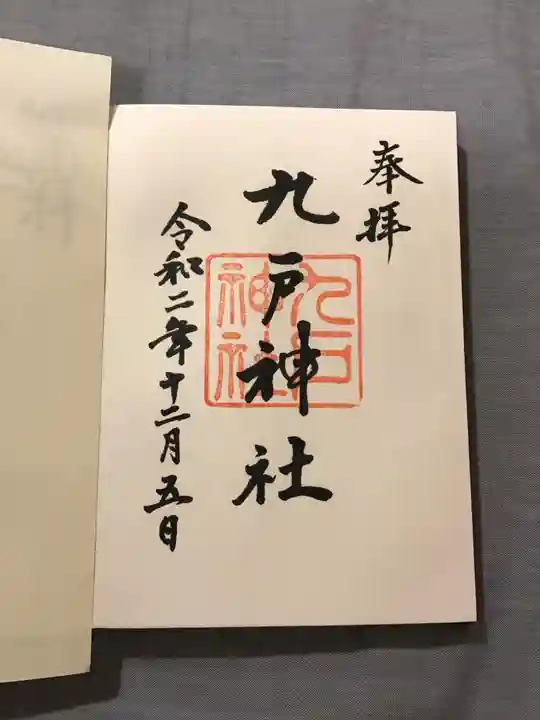 奉拝
九戸神社
九戸
神社
令和二年十二月五日